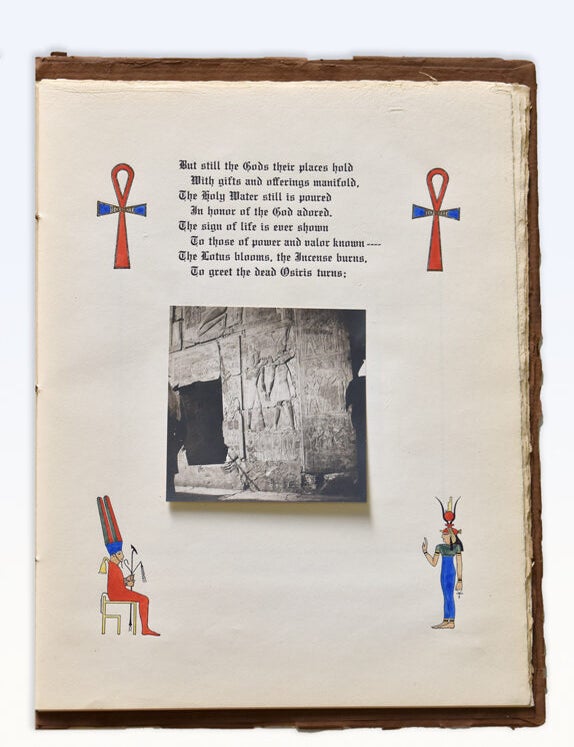 But still the Gods their places hold
With gifts and offerings manifold,
The Holy Water still is poured
In honor of the God adored.
The sign of life is ever shown
To those of power and valor known----
The Lotus blooms, the Incense burns,
To greet the dead Osiris turns;